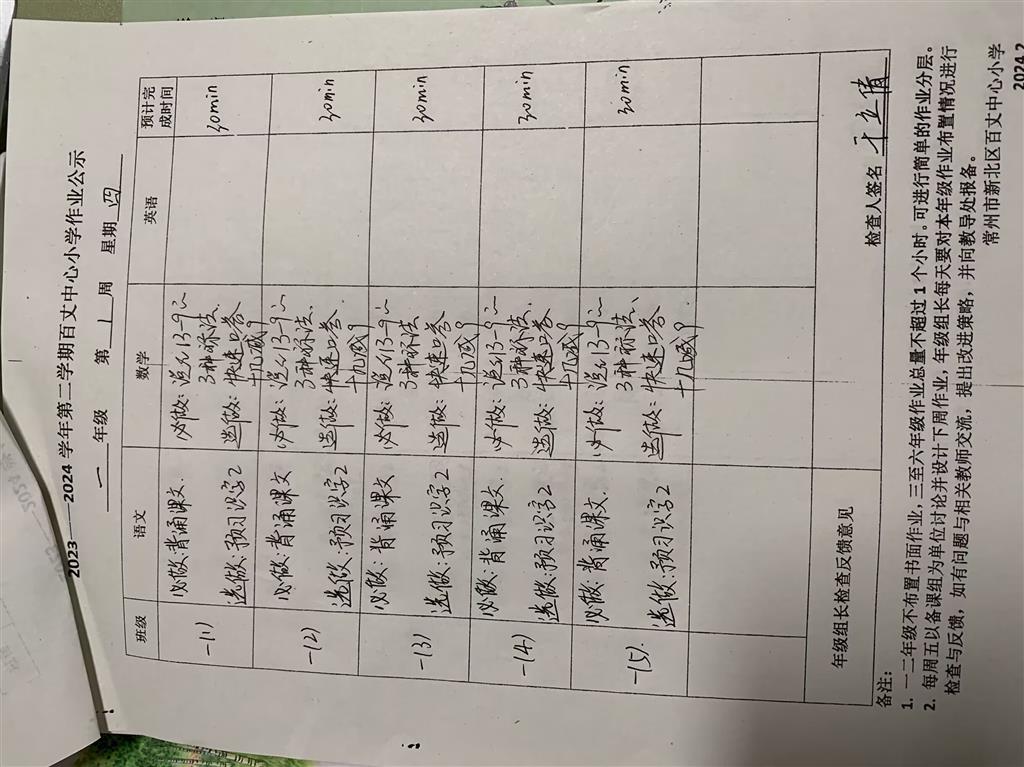 2023——2024 学年第二学期百丈中心小学作业公示
一 年级 第 1 周 星期 四
班级 语文 数学 英语 预计完成时间
一(1) 必做:背诵课文. 必做:说说13-9的3种算法. 30min
选做:预习识字2 选做:快速口答十几减9
一(2) 必做:背诵课文 必做:说说13-9的3种算法. 30min
选做:预习识字2 选做:快速口答十几减9
一(3) 必做:背诵课文 必做:说说13-9的3种算法 30min
选做:预习识字2 选做:快速口答十几减9
一(4) 必做:背诵课文. 必做:说说13-9的3种算法. 30min
选做:预习识字2 选做:快速口答十几减9
一(5) 必做:背诵课文. 必做:说说13-9的3种算法、 30min
选做:预习识字2 选做:快速口答十几减9
年级组长检查反馈意见
检查人签名
备注:
1. 一二年级不布置书面作业,三至六年级作业总量不超过 1 个小时。可进行简单的作业分层。
2. 每周五以备课组为单位讨论并设计下周作业,年级组长每天要对本年级作业布置情况进行
检查与反馈,如有问题与相关教师交流,提出改进策略,并向教导处报备。
常州市新北区百丈中心小学
2024.2